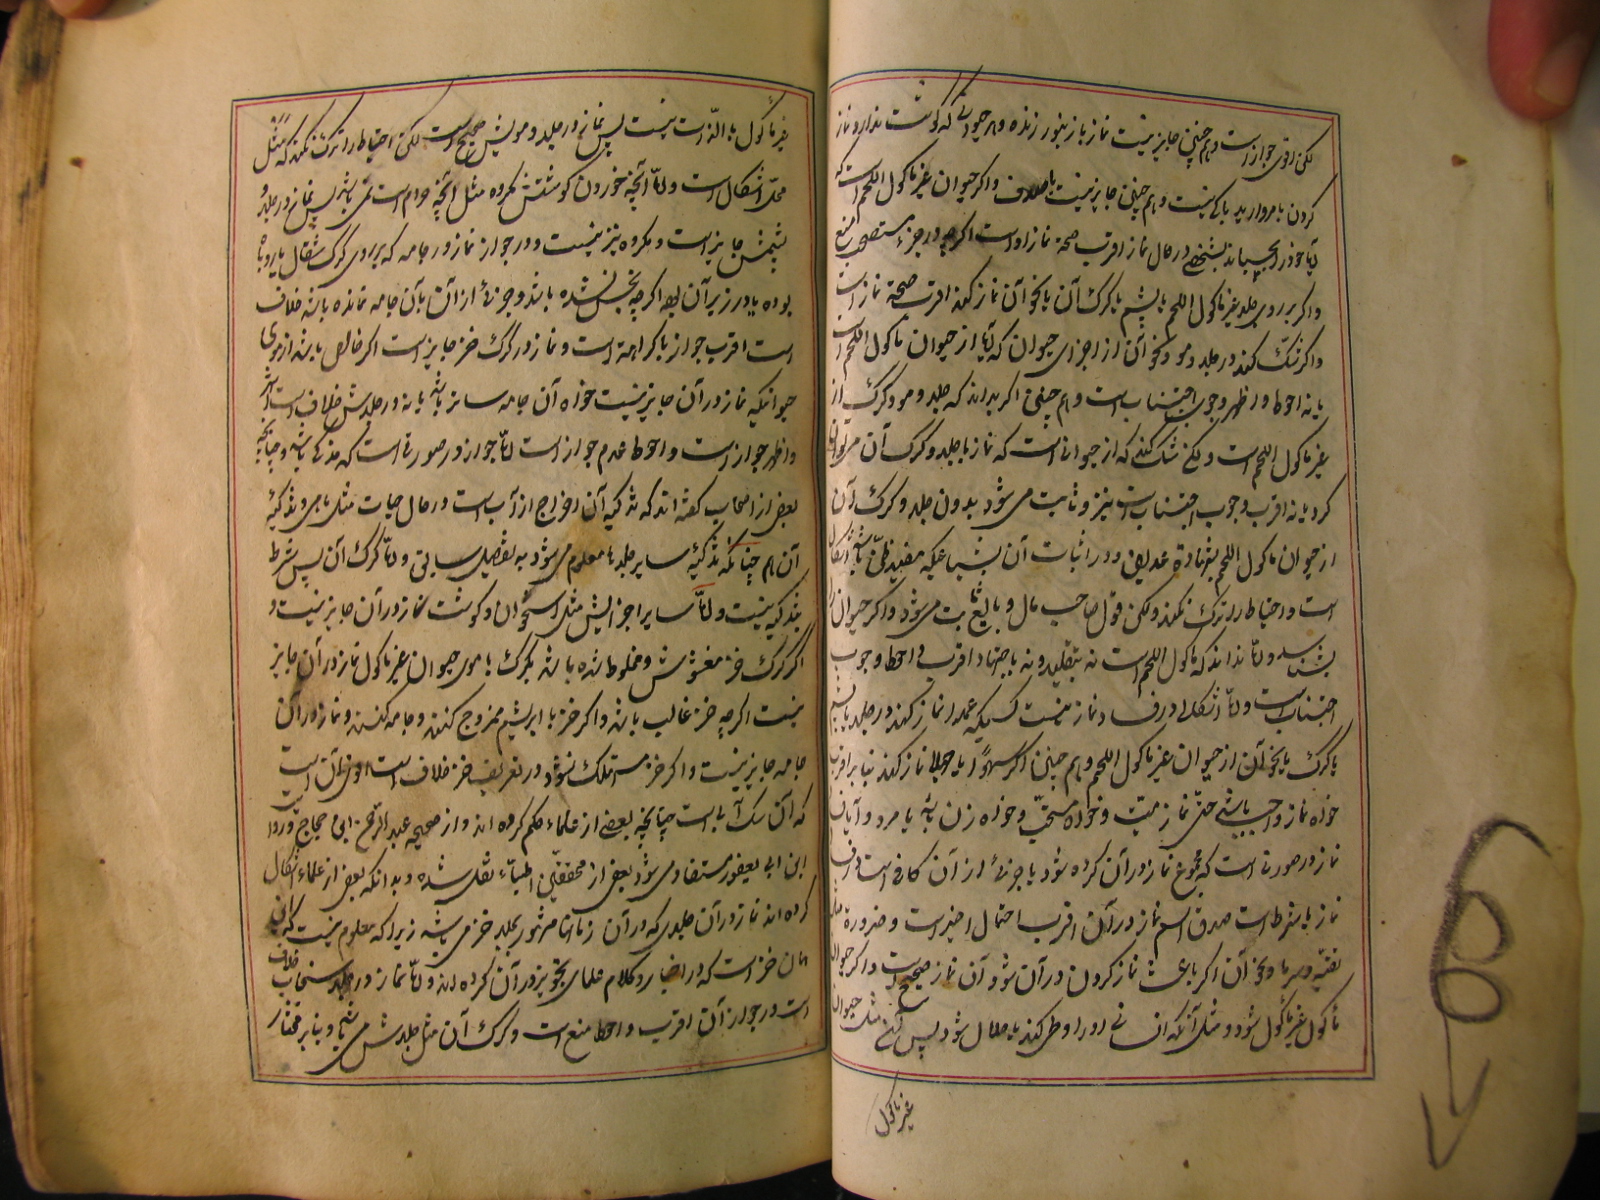 لکن اقوی جواز است و هم چنین جایز نیست نماز با زنبور زنده و هر حیوانی که گوشت ندارد و نماز
کردن با مروارید باکی نیست و هم چنین جایز نیست و اگر حیوان غیر ماکول اللحم است که
در حال نماز اقرب صحة نماز او است اگر چه در جزء
و اگر بر روی جلد غیر ماکول اللحم یا پشم یا کرک آن یا نحو آن نماز کند اقرب صحة نماز است
و اگر شک کند در جلد و مو و نحو آن از اجزای حیوان که آیا از حیوان ماکول اللحم است
یا نه احوط و اظهر وجوب اجتناب است و هم چنین اگر بداند که جلد و مو و کرک از
غیر ماکول اللحم است و لکن شک کند که از حیوانی است که نماز با جلد و کرک آن می توان
کرد یا نه اقرب وجوب اجتناب است نیز و ثابت می شود بودن جلد و کرک آن
از حیوان ماکول اللحم بشهادة عدلین و در اثبات آن بشیاعیکه مفید ظن باشد اشکال
است و احتیاط را ترک نکند و لکن قول صاحب مال و بایع ثابت می شود و اگر حیوان را
بشناسد و اما نداند که ماکول اللحم است نه بتقلید و نه باجتهاد اقرب و احوط وجوب
اجتناب است و اما اشکالی در فساد نماز نیست کسیکه عمدا نماز کند در جلد یا پشم
یا کرک یا نحو آن از حیوان غیر ماکول اللحم و هم چنین اگر سهوا یا جهلا نماز کند بنا بر اقرب
خواه نماز واجب باشد حتی نماز میت و خواه مستحب و خواه زن باشد یا مرد و آیا
نماز در صورتی است که مجموع نماز در آن کرده شود یا جزئی از آن کافی است در
نماز یا شرط است صدق اسم نماز در آن اقرب احتمال اخیر است و ضرورة مثل
تقیه و سرما و نحو آن اگر باعث نماز کردن در آن شود آن نماز صحیح است و اگر حیوان
ماکول غیر ماکول شود و مثل آنکه انسانی او را وطی کند یا جلال شود پس مثل حیوان
غیر ماکول
غیر ماکول بالذات است نیست پس نماز در جلد و مویش صحیح است لکن احتیاط را ترک نکند که مسئله
محل اشکال است و اما آنچه خوردن گوشتش مکروه مثل آنچه حرام است نمی باشد پس نماز در جلد و
پشمش جایز است و مکروه نیز نیست و در جواز نماز در جامه که بر روی کرک
بوده یا در زیر آن اگر چه نجس نشده باشد و جزئی از آن بآن جامه نمانده باشد خلاف
است اقرب جواز با کراهة است و نماز در کرک خز جایز است اگر خالص باشد از موی
حیوانیکه نماز در آن جایز نیست خواه آن جامه ساتر باشد یا نه و در جلدش خلاف است
و اظهر جواز است و احوط عدم جواز است اما جواز در صورتی است که مذکی باشد و چنانچه
بعضی از اصحاب گفته اند که تذکیه آن اخراج از آب است در حال حیات مثل ماهی و تذکیه
آن هم چنانکه تذکیه سایر جلدها معلوم می شود به تفصیل سیاتی و اما کرک آن پس شرط
بتذکیه نیست و اما سایر اجزایش مثل استخوان و گوشت نماز در آن جایز نیست و
اگر کرک خز مغشوش و مخلوط شده باشد بکرک یا موی حیوان غیر ماکول نماز در آن جایز
نیست اگر چه خز غالب باشد و اگر خز با ابریشم ممزوج کنند و جامه کنند و نماز در آن
جامه جایز نیست و اگر خز مستهلک نشود در تعریف خز خلاف است اقوی آن است
که آن سک آبی است چنانچه بعضی از علماء حکم کرده اند و از صحیحه عبد الرحمن ابن حجاج و روایة
ابن ابی یعفور مستفاد می شود بعضی از محققین اطباء نقل شده و بدانکه بعضی از علماء اشکال
کرده اند نماز در آن جلدی که در آن زمانها مشهور بجلد خز می باشد زیرا که معلوم نیست که این
همان خز است که در اخبار و کلام علمای تجویز در آن کرده اند و اما نماز در جلد سنجاب خلاف
است در جواز آن اقرب و احوط منع است و کرک آن مثل جلدش می باشد و بنا بر مختار